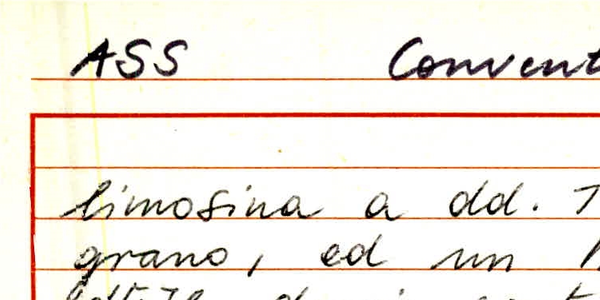 ASS Convent
limosina a dd.
grano, ed un